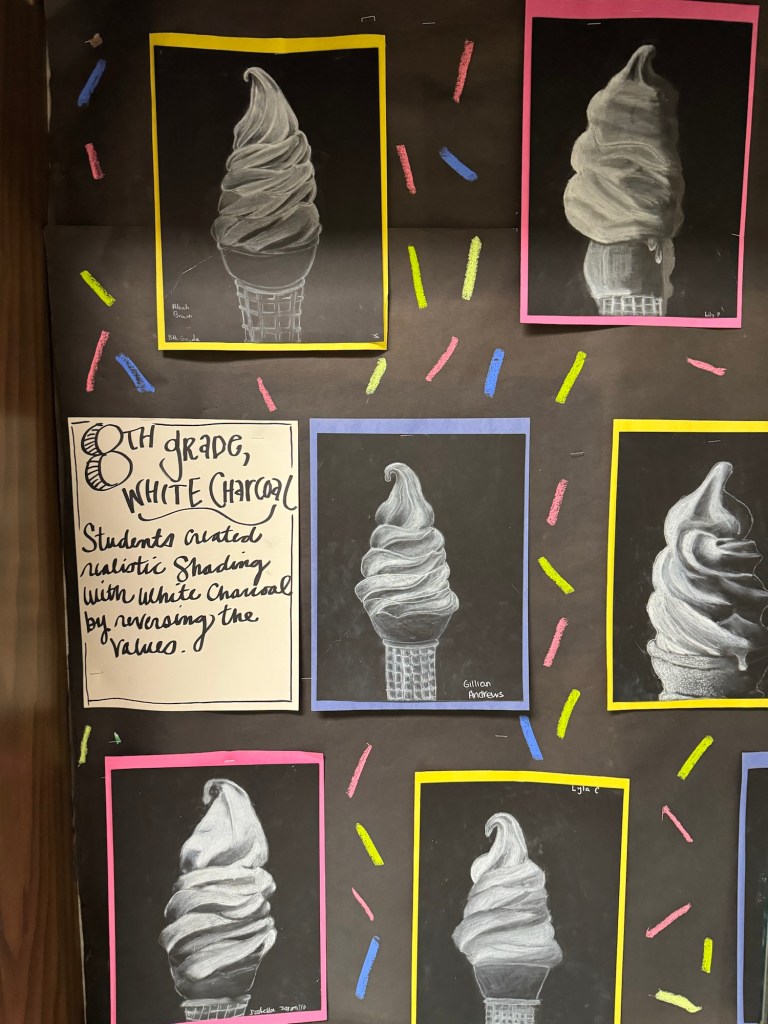 8th Grade
Lily P
8TH GRADE,
WHITE CHARCOAL
Students created
realistic Shading
with White Charcoal
by reversing the
values.
Gillian
Andrews
Lyla C